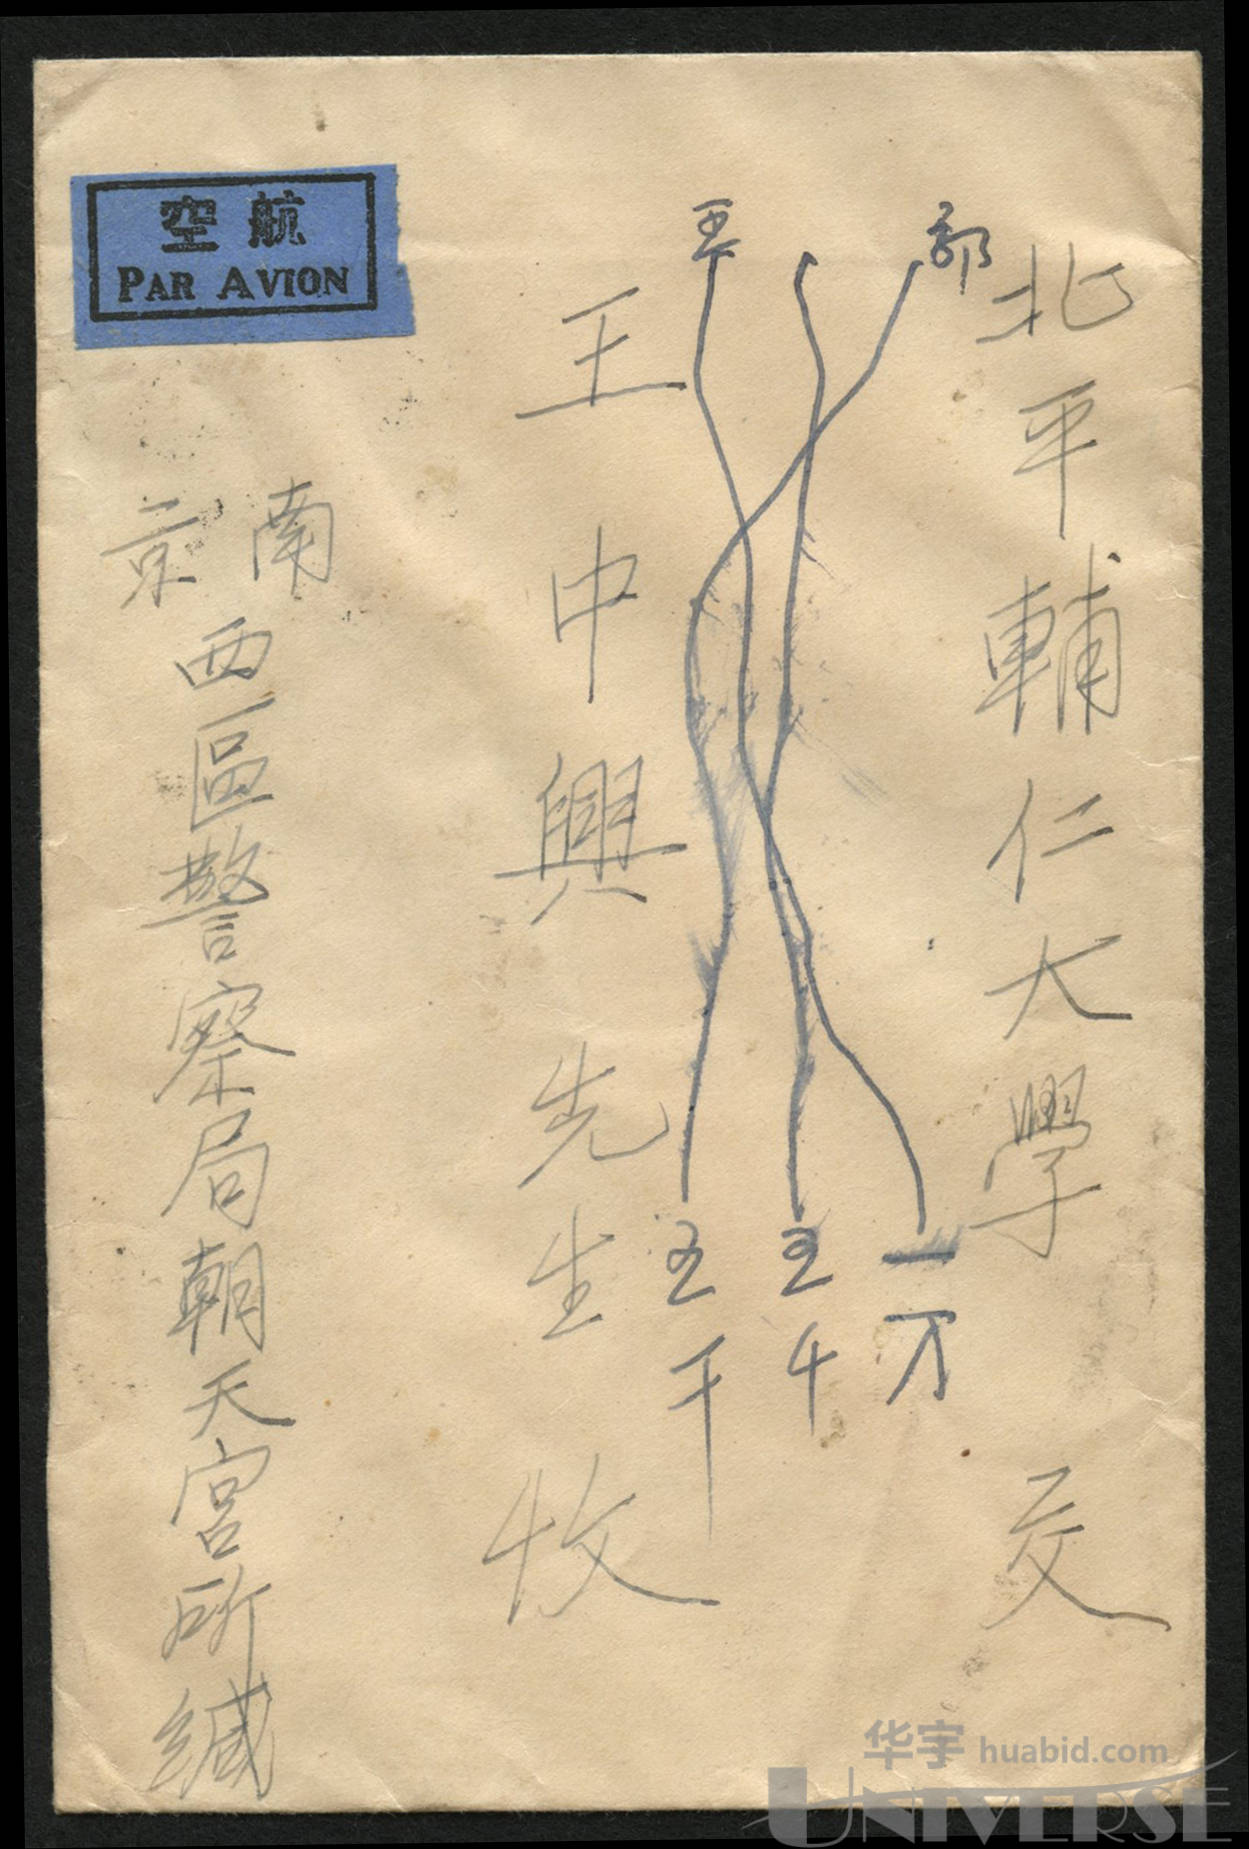 航空
PAR AVION
北平輔仁大學 交
王中興先生 收
南京西區警察局朝天宮所緘
一万
五千
华宇 huabid.com
UNIVERSE